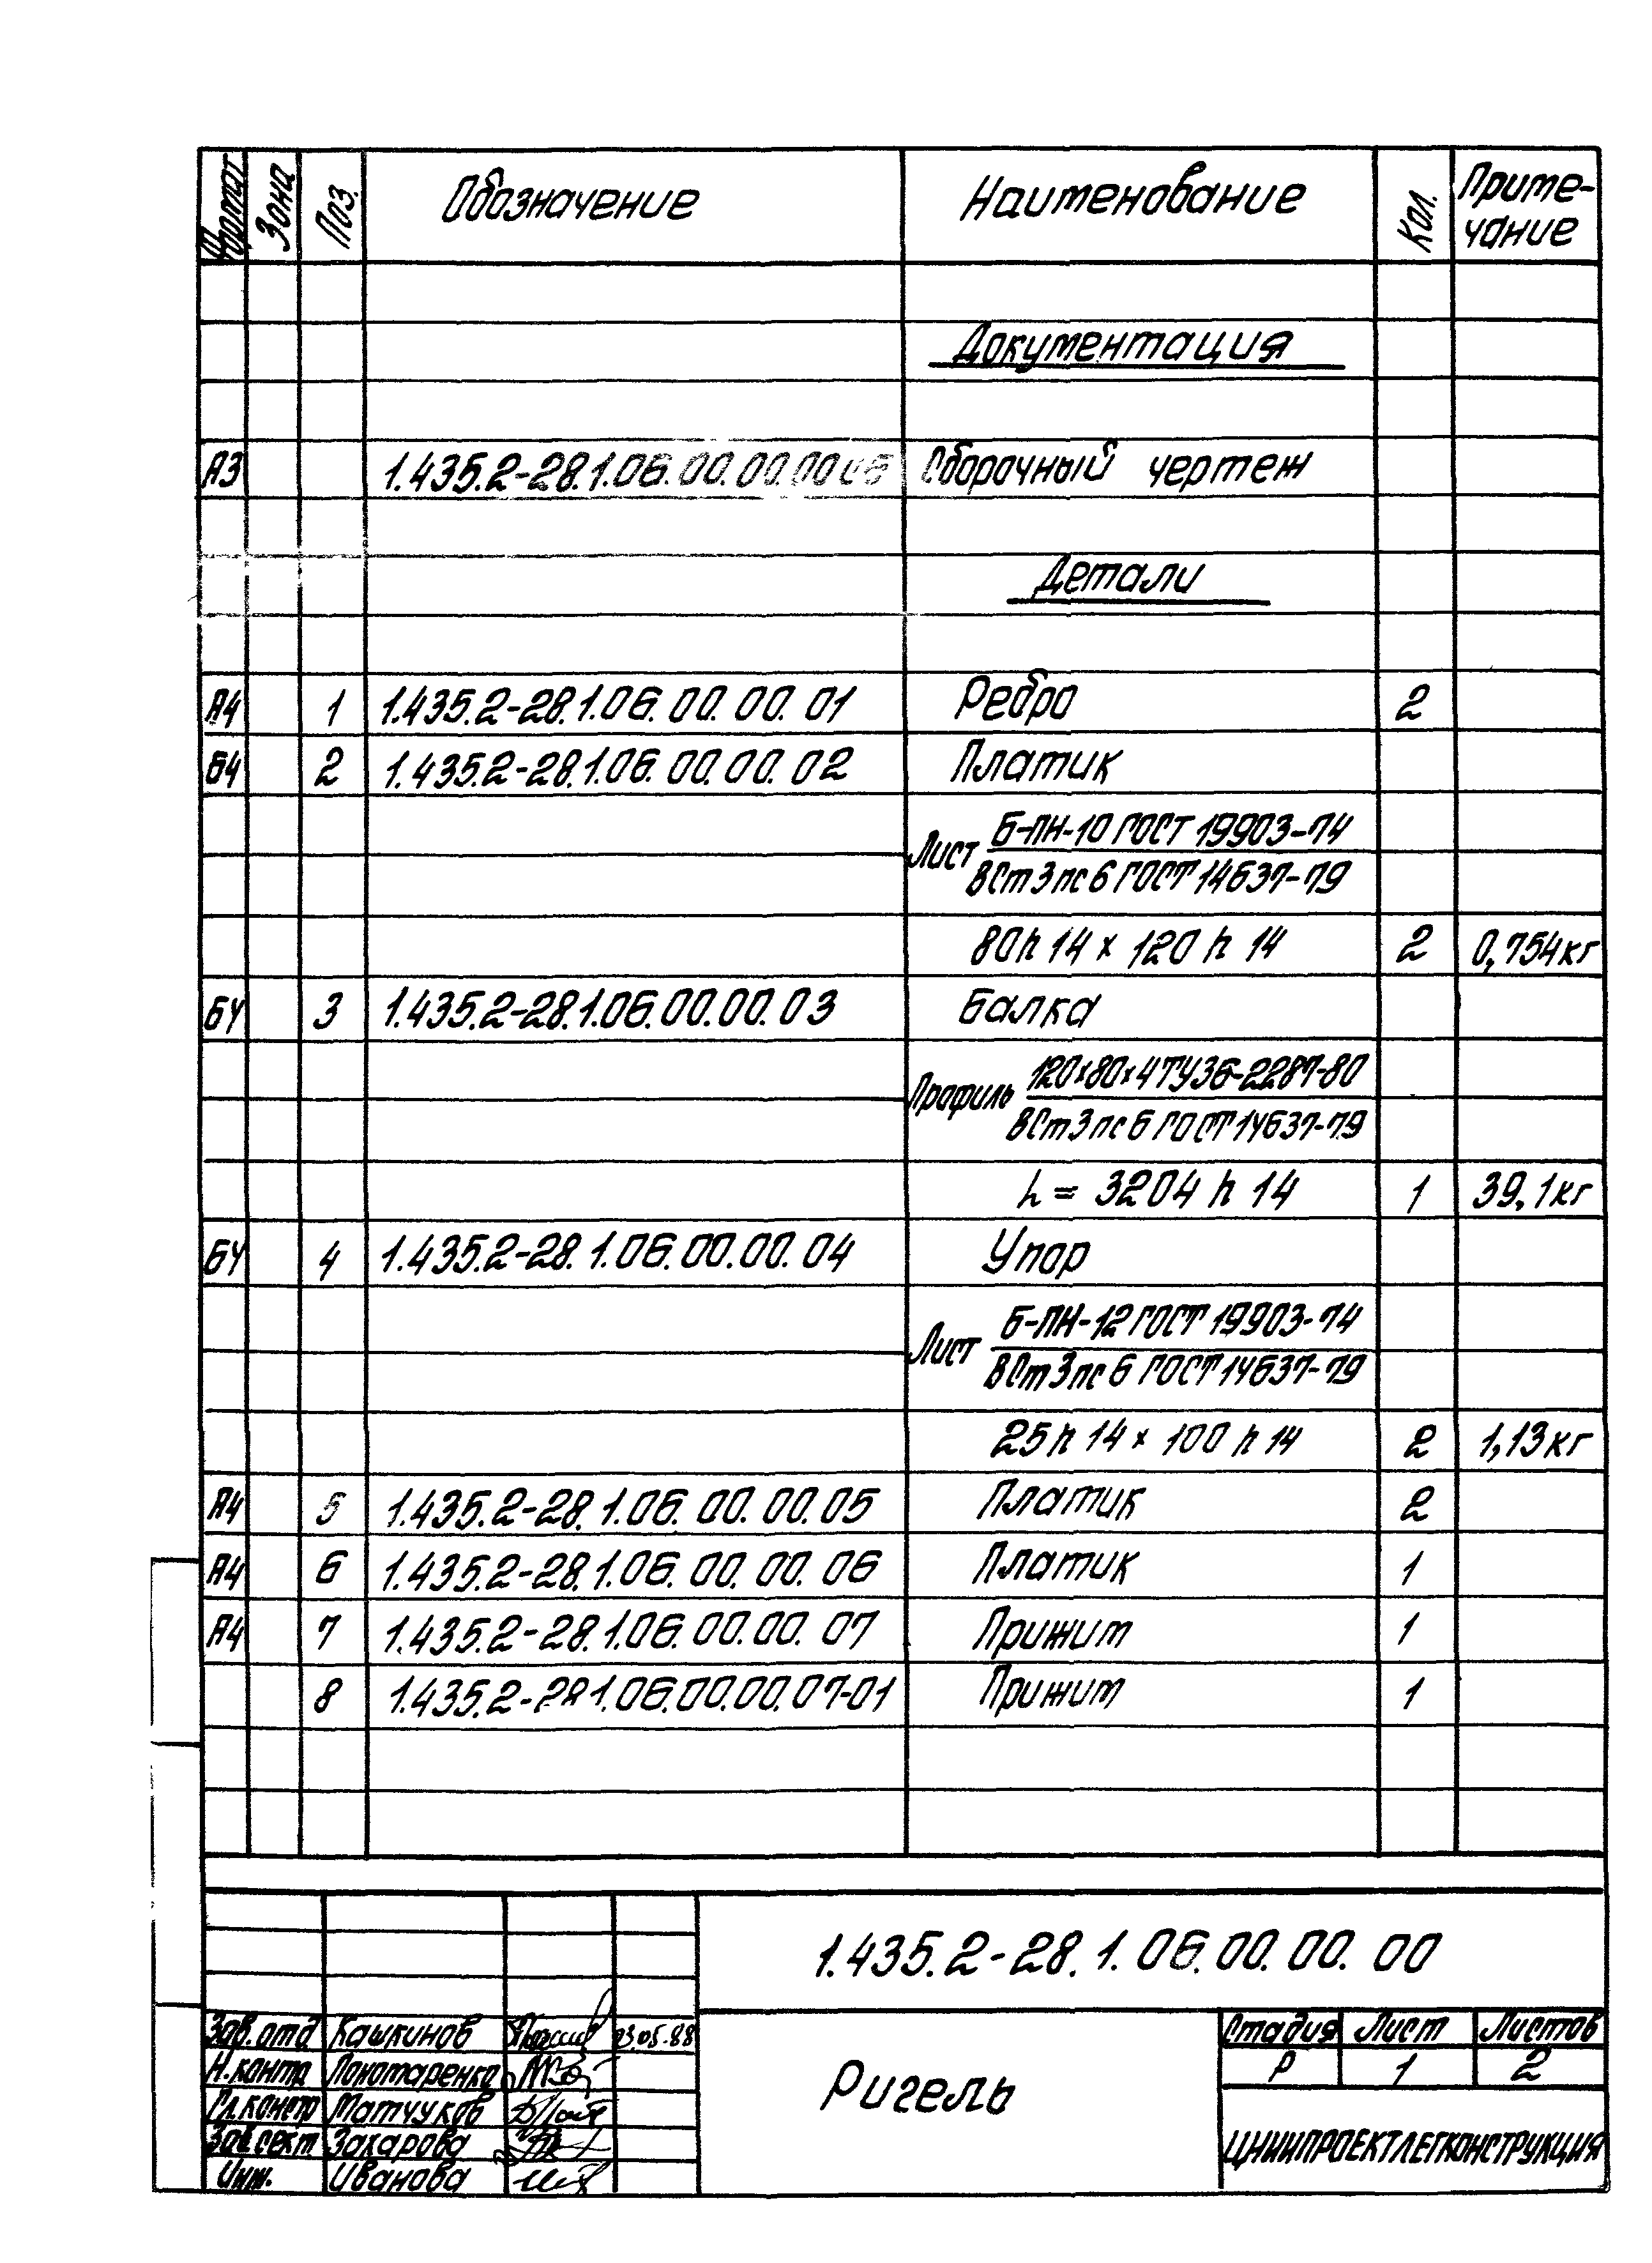 Формат Зона Поз. Обозначение Наименование Кол. Приме-
чание
Документация
А3 1.435.2-28.1.06.00.00.00 СБ Сборочный чертеж
Детали
А4 1 1.435.2-28.1.06.00.00.01 Ребро 2
Б4 2 1.435.2-28.1.06.00.00.02 Платик
Лист Б-ПН-10 ГОСТ 19903-74
ВСт3пс6 ГОСТ 14637-79
80h14 × 120h14 2 0,754кг
БЧ 3 1.435.2-28.1.06.00.00.03 Балка
Профиль 120×80×4 ТУ36-2287-80
ВСт3пс6 ГОСТ 14637-79
L = 3204 h14 1 39,1кг
БЧ 4 1.435.2-28.1.06.00.00.04 Упор
Лист Б-ПН-12 ГОСТ 19903-74
ВСт3пс6 ГОСТ 14637-79
25h14 × 100h14 2 1,13кг
А4 5 1.435.2-28.1.06.00.00.05 Платик 2
А4 6 1.435.2-28.1.06.00.00.06 Платик 1
А4 7 1.435.2-28.1.06.00.00.07 Прижим 1
8 1.435.2-28.1.06.00.00.07-01 Прижим 1
1.435.2-28.1.06.00.00.00
Зав.отд Кашкинов 23.05.88
Н.контр Пономаренко
Гл.констр Матчуков
Зав сект Захарова
Инж. Иванова
Ригель
Стадия Лист Листов
Р 1 2
ЦНИИПРОЕКТЛЕГКОНСТРУКЦИЯ